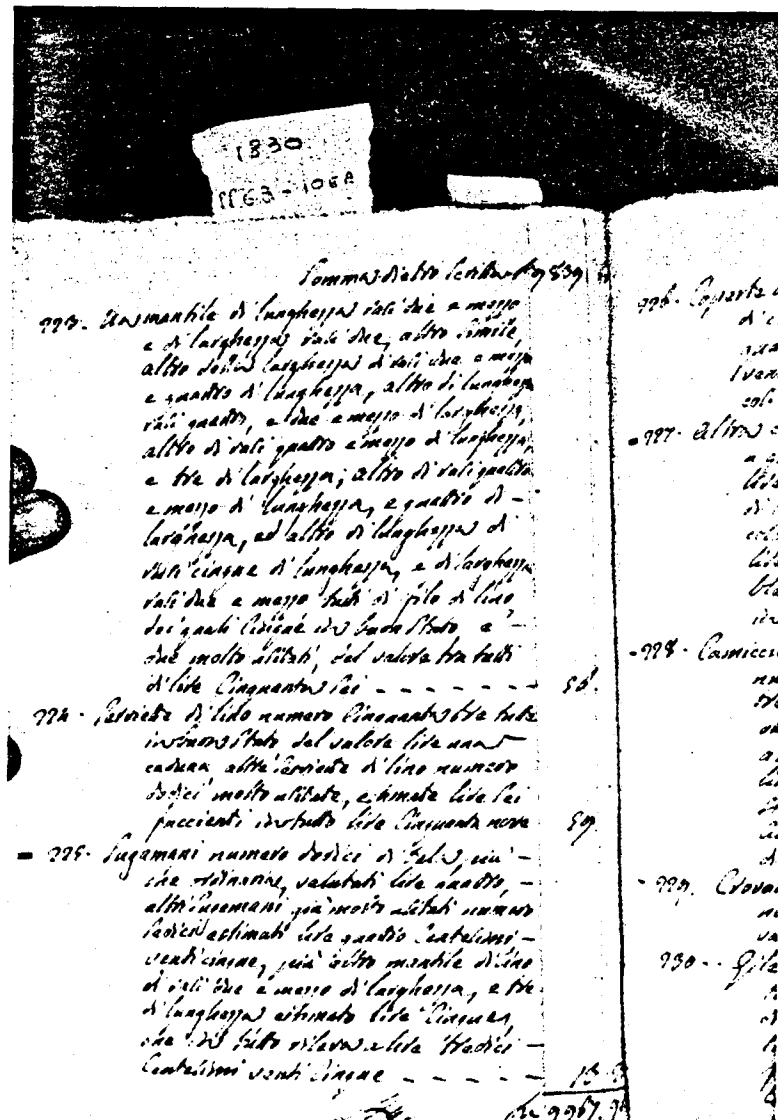 1830
1063 - 106A
Somma dietro scritta £ 9839
223 - Un mantile di lunghezza rasi due e mezzo
e di larghezza rasi due, altro simile,
altro della larghezza di rasi due e mezzo
e quattro di lunghezza, altro di lunghezza
rasi quattro, e due e mezzo di larghezza,
altro di rasi quattro e mezzo di lunghezza,
e tre di larghezza; altro di rasi quattro
e mezzo di lunghezza, e quattro di -
larghezza, ed altro di lunghezza di
rasi cinque di lunghezza, e di larghezza
rasi due e mezzo tutti di filo di lino
dei quali cinque in buon stato e -
due molto usitati, del valore tra tutti
di lire Cinquanta sei - - - - - 56.
224 - Serviette di lino numero Cinquanta tre tutte
in buon stato del valore lire una -
caduna altre serviette di lino numero
dodici molto usitate, estimate lire sei
faccienti in tutto lire Cinquanta nove 59
= 225 - Sugamani numero dodici di tela, più -
che ordinaria, valutati lire quattro, -
altri sugamani già molto usitati numero
sedici estimati lire quattro Centesimi -
venticinque, più altro mantile di lino
di rasi due e mezzo di larghezza, e tre
di lunghezza estimato lire Cinque,
che in tutto rileva a lire tredici -
Centesimi venti Cinque - - - - - 13.
9967.
226 - Coperta
di
(ven
- 227 - Altra
di
- 228 - Camicie
- 229.
230 -